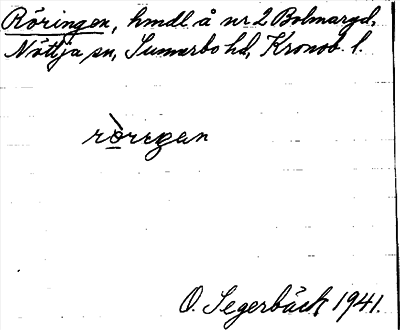 Röringen, hmdl å nr 2 Bolmaryd,
Nöttja sn, Sunnerbo hd, Kronob. l.
O. Segerbäck 1941.